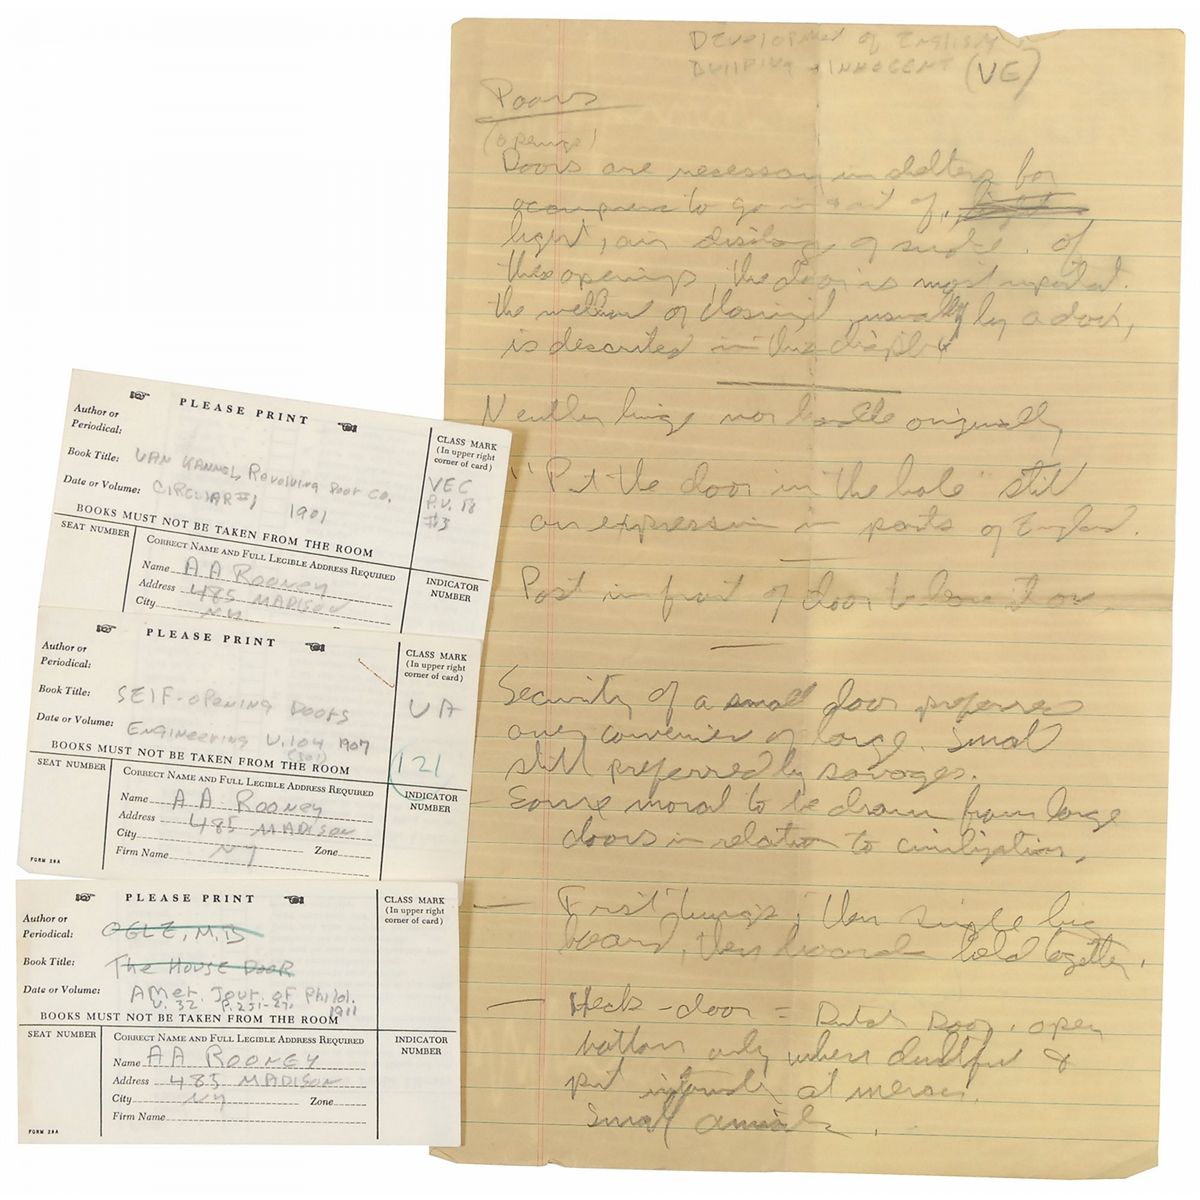 PLEASE PRINT
Author or
Periodical:
Book Title: VAN KANNEL Revolving Door Co.
Date or Volume: CIRCULAR #1 1901
CLASS MARK
(In upper right
corner of card)
VEC
P.V. 18
#3
BOOKS MUST NOT BE TAKEN FROM THE ROOM
SEAT NUMBER
CORRECT NAME AND FULL LEGIBLE ADDRESS REQUIRED
Name AA ROONEY
Address 485 MADISON
City NY
INDICATOR
NUMBER
PLEASE PRINT
Author or
Periodical:
Book Title: SELF-OPENING DOORS
Date or Volume: ENGINEERING V.104 1907
CLASS MARK
(In upper right
corner of card)
VA
121
BOOKS MUST NOT BE TAKEN FROM THE ROOM
SEAT NUMBER
CORRECT NAME AND FULL LEGIBLE ADDRESS REQUIRED
Name AA ROONEY
Address 485 MADISON
City NY Zone
Firm Name
INDICATOR
NUMBER
FORM 28A
PLEASE PRINT
Author or
Periodical: OGLE, M.B
Book Title: The House Door
Date or Volume: AMer. Jour. of Philol.
V. 32 P.251-271 1911
CLASS MARK
(In upper right
corner of card)
BOOKS MUST NOT BE TAKEN FROM THE ROOM
SEAT NUMBER
CORRECT NAME AND FULL LEGIBLE ADDRESS REQUIRED
Name AA ROONEY
Address 485 MADISON
City NY Zone
Firm Name
INDICATOR
NUMBER
FORM 28A
DEVELOPMENT of ENGLISH
BUILDING INNOCENT (VE)
Doors
(openings)
Doors are necessary in shelters for
occupants to go in out of,
light, air discharge of smoke. Of
these openings, the door is most important.
the method of closing it, usually by a door,
is described in this chapter
Neither hinge nor handle originally
"Put the door in the hole" still
an expression in parts of England.
Post in front of door to lean it on.
Security of a small door preferred
over convenience of large. Small
still preferred by savages.
- Some moral to be drawn from large
doors in relation to civilization.
- First twigs, then single big
board, then boards held together.
- Heck-door = Dutch Door. open
bottom only when doubtful &
put intruder at mercy.
Small animals.